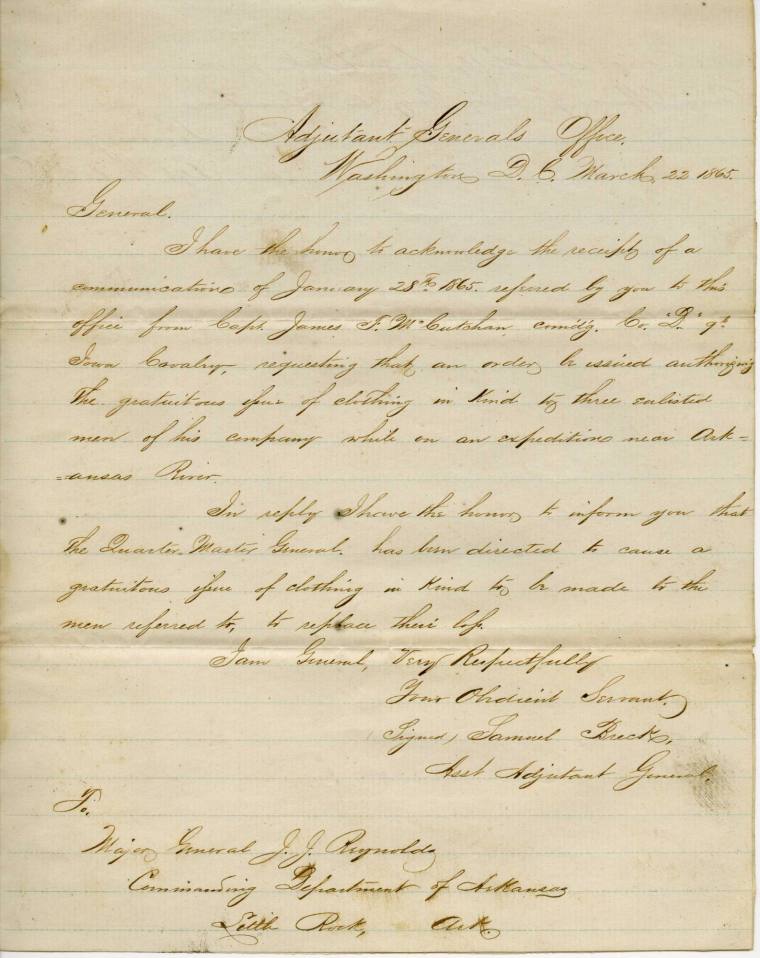 Adjutant Generals Office,
Washington D. C. March 22 1865.
General.
I have the honor to acknowledge the receipt of a
communication of January 28th 1865. referred by you to this
office from Capt. James F. McCutchan comd'g. Co. "D." 9th
Iowa Cavalry, requesting that an order be issued authorizing
the gratuitous issue of clothing in Kind to three enlisted
men of his company while on an expedition near Ark=
=ansas River.
In reply I have the honor to inform you that
the Quarter-Master General. has been directed to cause a
gratuitous issue of clothing in Kind to be made to the
men referred to, to replace their loss.
I am General, Very Respectfully
Your Obedient Servant.
(Signed) Samuel Breck,
Asst Adjutant General.
To.
Major General J. J. Reynolds
Commanding Department of Arkansas
Little Rock, Ark.